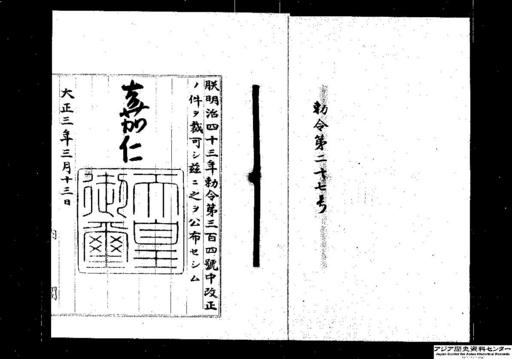 勅令第二十七号
朕明治四十三年勅令第三百四號中改正
ノ件ヲ裁可シ茲ニ之ヲ公布セシム
嘉仁
天皇御璽
大正三年三月十三日
内閣
アジア歴史資料センター
Japan Center for Asian Historical Records